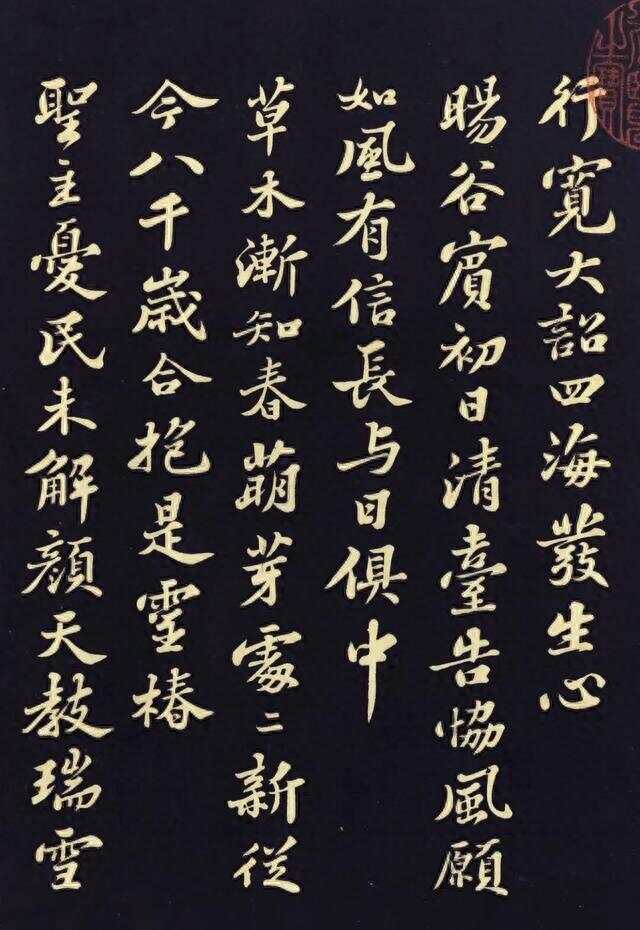 行寬大詔四海發生心
暘谷賓初日清臺告協風願
如風有信長与日俱中
草木漸知春萌芽處二新從
今八千歲合抱是靈椿
聖主憂民未解顏天教瑞雪